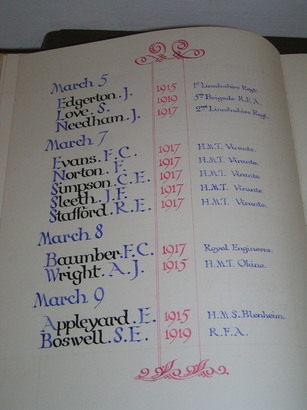 March 5
Edgerton. J. 1915 1st Lincolnshire Regt.
Love. S. 1919 5th Brigade R.F.A.
Needham. J. 1917 2nd Lincolnshire Regt.
March 7
Evans. F. C. 1917 H.M.T. Vicente.
Norton. F. 1917 H.M.T. Vicente.
Simpson. C. E. 1917 H.M.T. Vicente
Sleeth. J. F. 1917 H.M.T. Vicente
Stafford. R. E. 1917 H.M.T. Vicente.
March 8
Baumber. F. C. 1917 Royal Engineers.
Wright. A. J. 1915 H.M.T. Okino.
March 9
Appleyard. E. 1915 H.M.S. Blenheim.
Boswell. S. E. 1919 R.F.A.